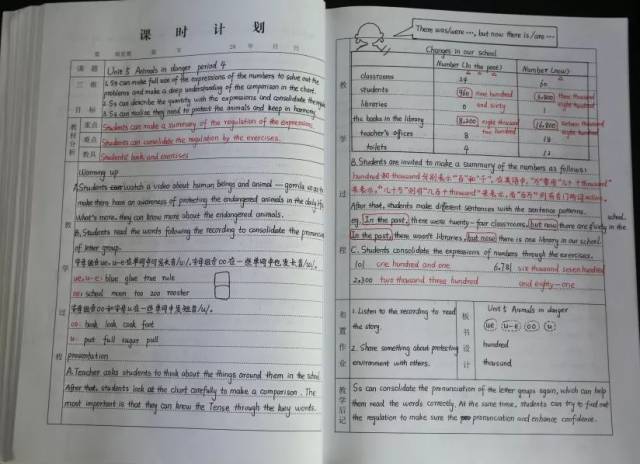 课 时 计 划
课 题
Unit 5 Animals in danger period 4
三 维 目 标
1. Ss can make full use of the expressions of the numbers to solve out the
problems and make a deep understanding of the comparison in the chart.
2. Ss can describe the quantity with the expressions and consolidate the
3. Ss can realise they need to protect the animals and keep in harmony.
教材分析
重点
Students can make a summary of the regulation of the expressions.
难点
Students can consolidate the regulation by the exercises.
教具
Students' book and exercises
教 学 过 程
Warming up
A. Students watch a video about human beings and animal — gorilla so as to
make them have an awareness of protecting the endangered animals in the daily life.
What's more, they can know more about the endangered animals.
B. Students read the words following the recording to consolidate the pronunciation
of letter group.
字母组合ue, u-e在单词中可发长音/u:/, 字母组合oo在一些单词中也发长音/u:/.
ue, u-e: blue glue true rule
oo: school moon too zoo rooster
字母组合oo和字母u在一些单词中发短音/u/.
oo: book look cook foot
u: put full sugar pull
presentation
A. Teacher asks students to think about the things around them in the school
After that, students look at the chart carefully to make a comparison. The
most important is that they can know the Tense through the key words.
There was/were ..., but now there is/are ...
Changes in our school
Number (In the past) Number (now)
classrooms 24 60
students 960 nine hundred and sixty 3,800 three thousand eight hundred
libraries 0 1
the books in the library 8,200 eight thousand two hundred 16,800 sixteen thousand eight hundred
teacher's offices 8 18
toilets 4 12
教 学 过 程
B. Students are invited to make a summary of the numbers as follows:
After that, students make different sentences with the sentence patterns.
eg. In the past, there were twenty-four classrooms, but now there are sixty in the school.
In the past, there wasn't libraries, but now there is one library in our school.
C. Students consolidate the expressions of numbers through the exercises.
101 one hundred and one 6,781 six thousand seven hundred
and eighty-one
2,300 two thousand three hundred
布置作业
1. Listen to the recording to read
the story.
2. Share something about protecting
environment with others.
板书设计
Unit 5 Animals in danger
ue u-e oo u
hundred
thousand
教学后记
Ss can consolidate the pronunciation of the letter groups again, which can help
them read the words correctly. At the same time, students can try to find out
the regulation to make sure the pronunciation and enhance confidence.